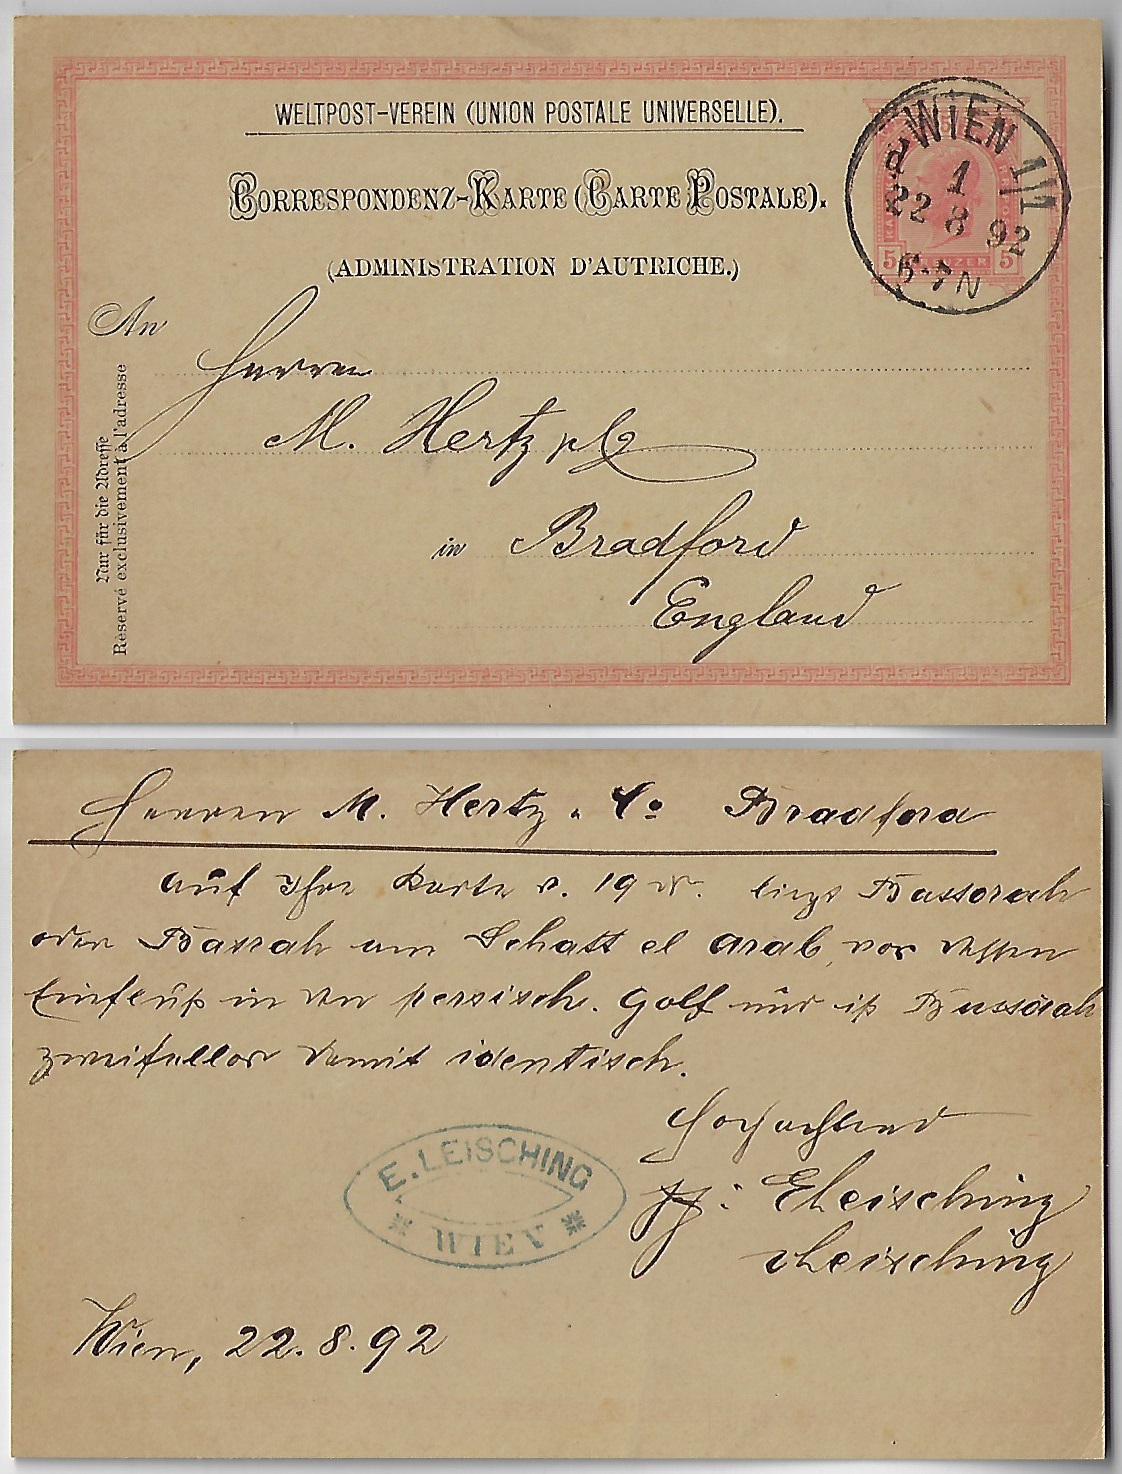 WELTPOST-VEREIN (UNION POSTALE UNIVERSELLE).
CORRESPONDENZ-KARTE (CARTE POSTALE).
(ADMINISTRATION D'AUTRICHE.)
WIEN 1/1
1
22 8 92
6-7 N
5 KREUZER 5
An
Herren
M. Hertz
in Bradford
England
Nur für die Adresse
Réservé exclusivement à l'adresse
Herren M. Hertz & Co Bradford
Auf Ihre Karte v. 19 liegt Bassorah
oder Basrah am Schatt el Arab, vor dessen
Einfluß in den persisch. Golf und ist Bussorah
zweifellos damit identisch.
Hochachtend
pp: ELeisching
Leisching
E. LEISCHING
WIEN
Wien, 22.8.92